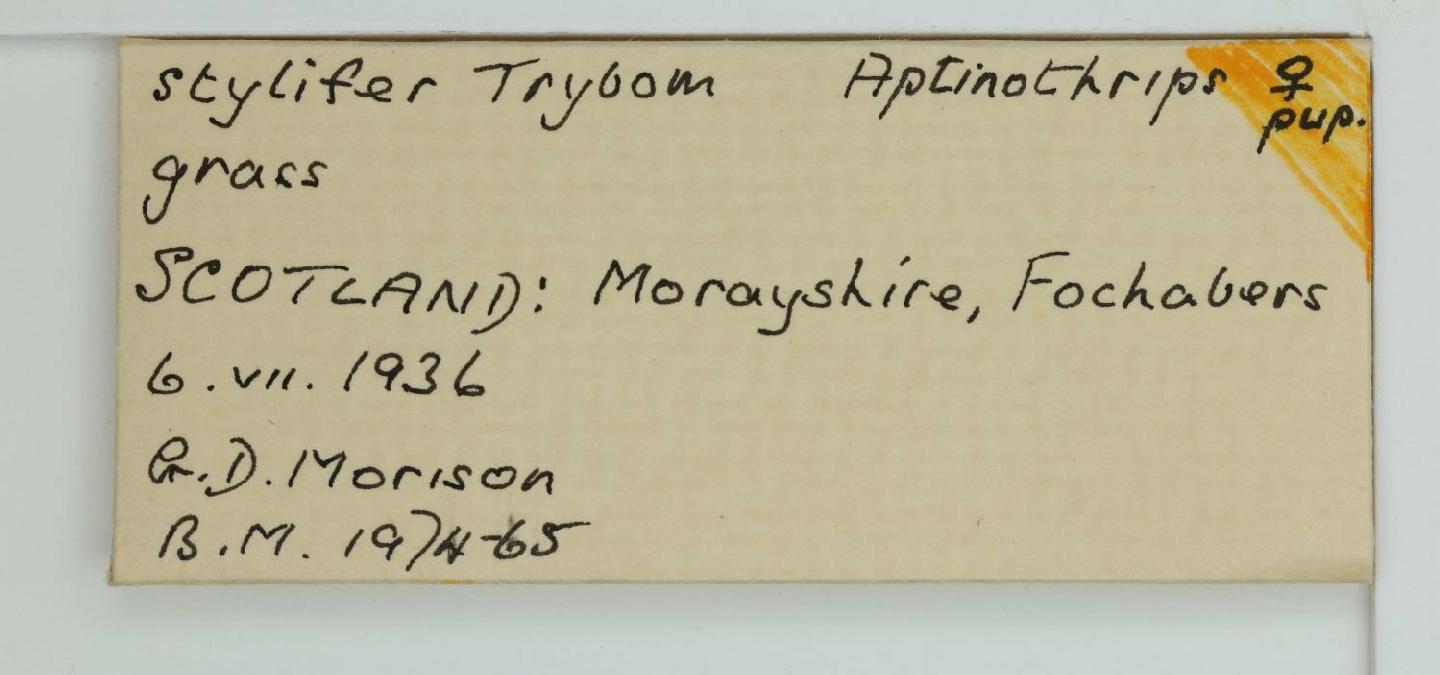 stylifer Trybom Aptinothrips ♀
pup.
grass
SCOTLAND: Morayshire, Fochabers
6.vii.1936
G.D. Morison
B.M. 1974-65